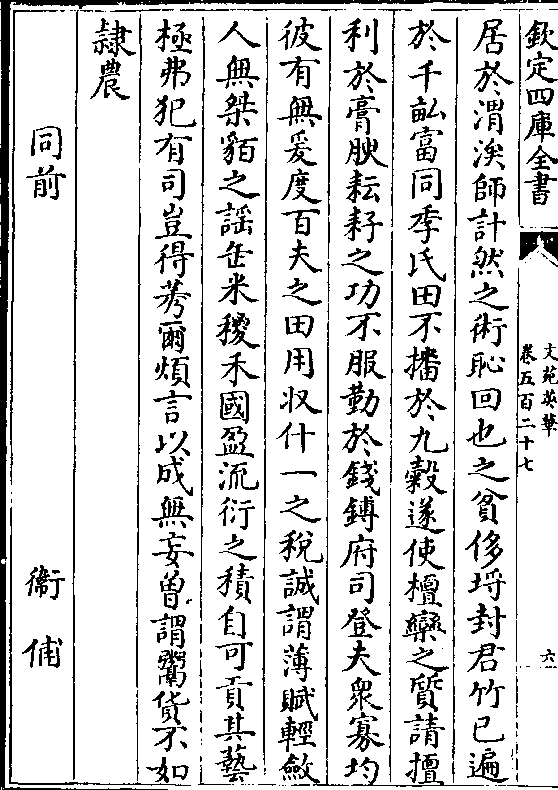 欽定四庫全書
文苑英華
卷五百二十七
六
居於渭涘師計然之術恥回也之貧侈埒封君竹已遍
於千畝富同季氏田不播於九穀遂使檀欒之質請擅
利於膏腴耘耔之功不服勤於錢鎛府司登夫衆寡均
彼有無爰度百夫之田用收什一之稅誠謂薄賦輕斂
人無桀貊之謡缶米稷禾國盈流衍之積自可貢其藝
極弗犯有司豈得考爾煩言以成無妄曾謂鬻貨不如
隸農
同前
衞俌